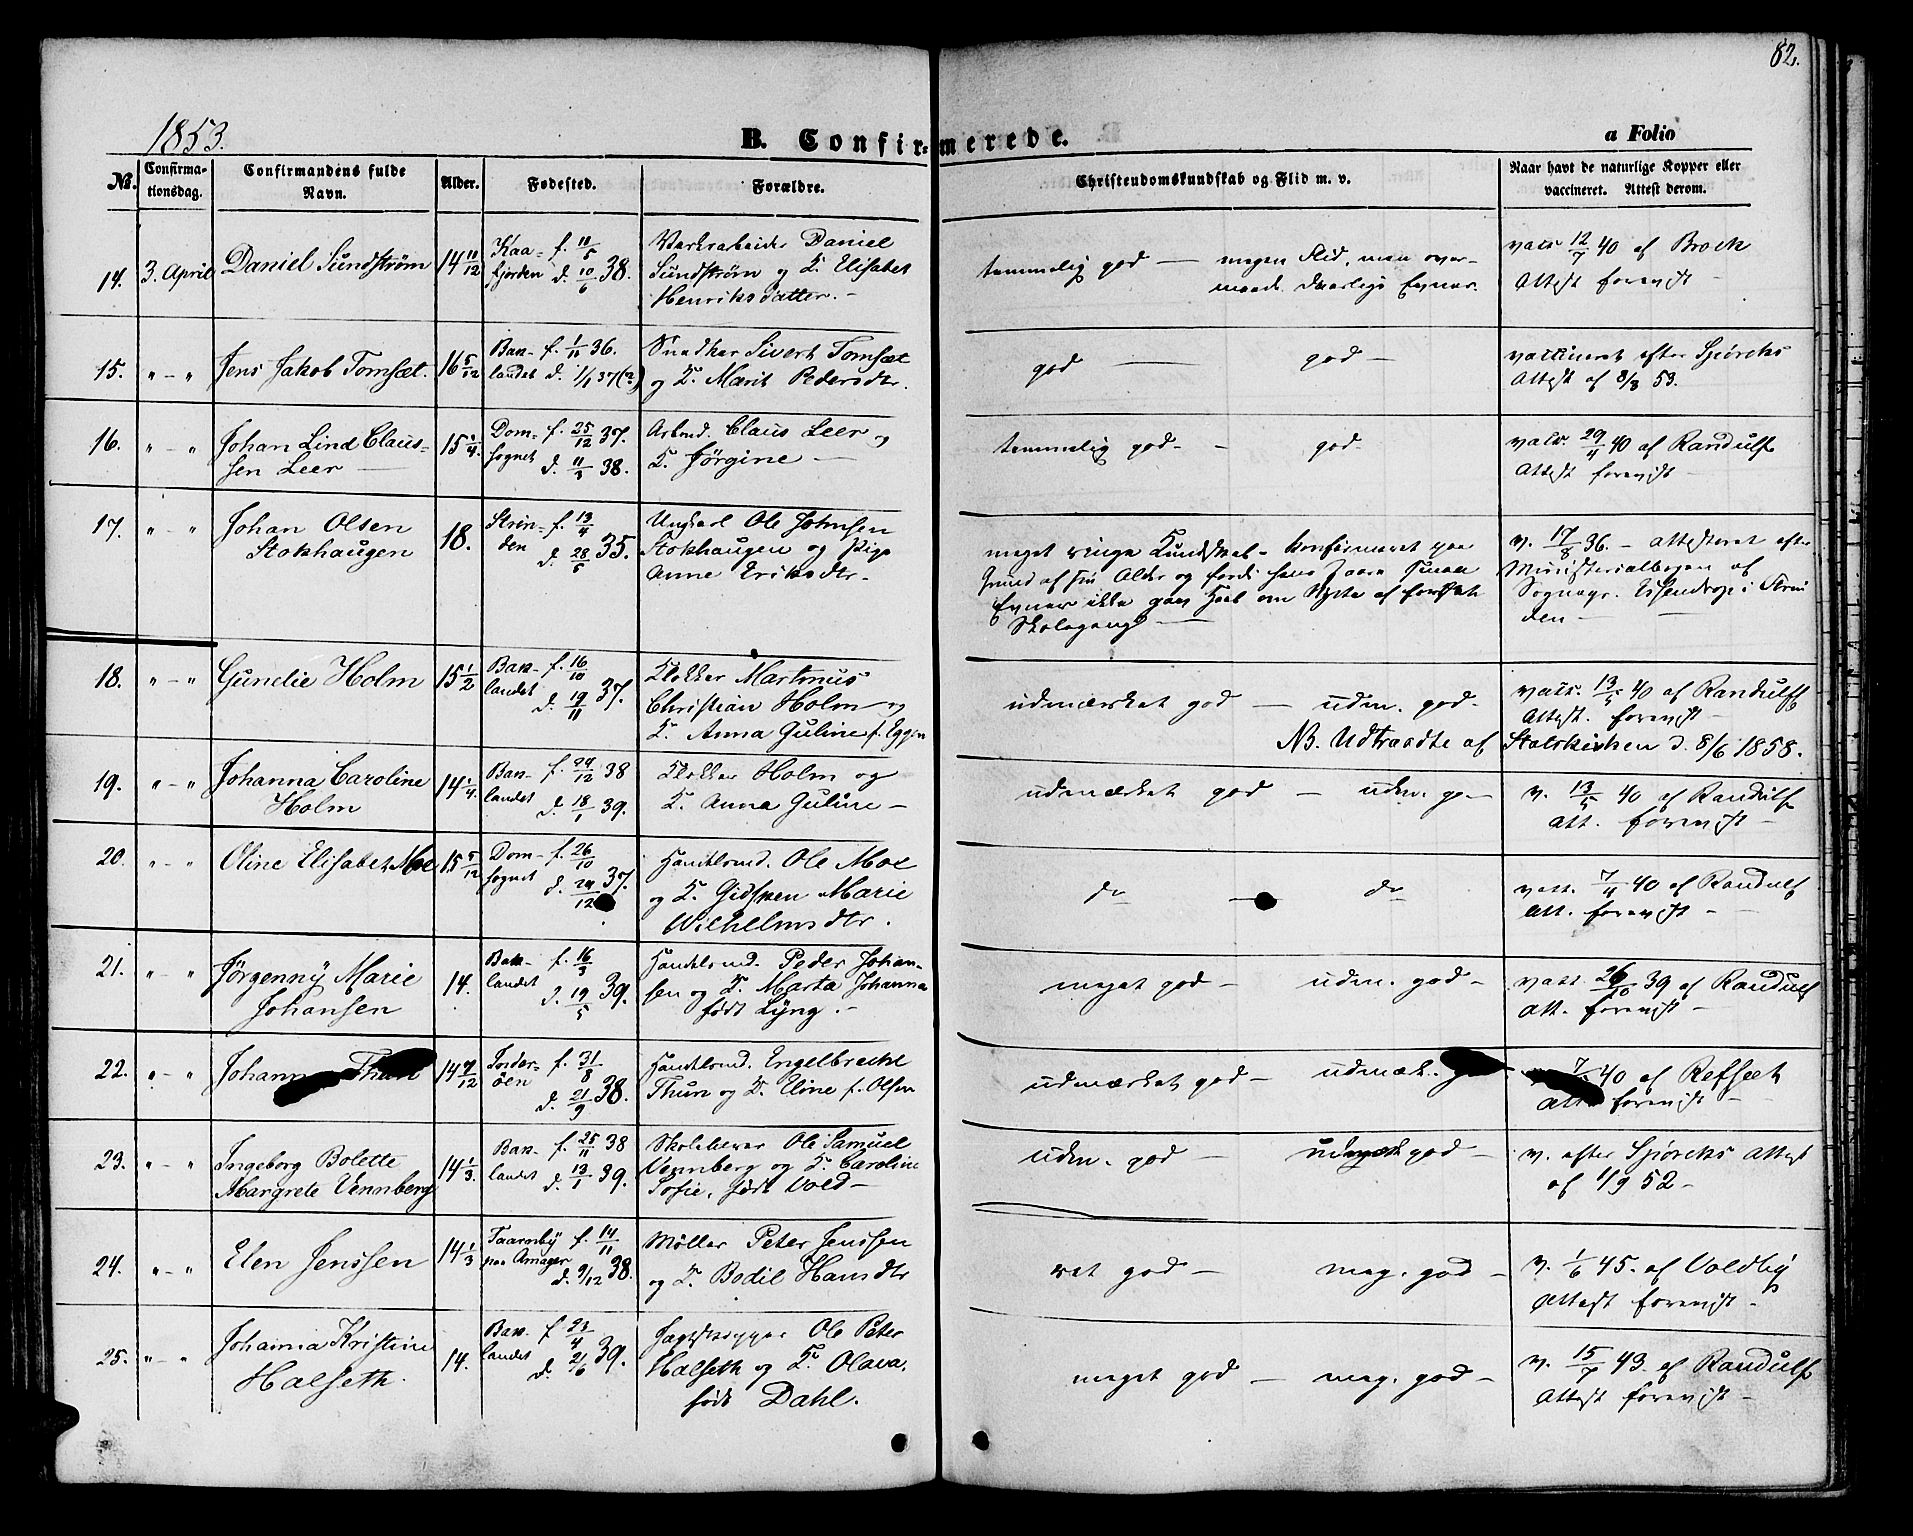 82.
1853.
B. Confirmerede.
a Folio
No.
Confirmationsdag.
Confirmandens fulde Navn.
Alder.
Fødested.
Forældre.
Christendomskundskab og Flid m. v.
Naar havt de naturlige Kopper eller
vaccineret. Attest derom.
14. 3. April Daniel Sundstrøm 14 11/12
Kaa- f. 11/5
fjorden d. 10/6 38.
Daniel
Sundstrøm og K. Elisabet
Henriksdatter.
temmelig god — megen Flid, men over-
maade daarlige Evner.
vacc. 12/7 40 af Brock
Attest forevist
15. " - " Jens Jakob Tomset. 16 5/12
Bak- f. 1/11 36.
landet d. 1/1 37 (?)
Snedker Sivert Tomset
og K. Marit Pedersdtr.
god — god —
vaccineret efter Sjørcks
Attest af 8/3 53.
16. " - " Johan Lind Claus-
sen Leer — 15 1/4.
Dom- f. 25/12 37.
sognet d. 11/3 38.
Arbmd. Claus Leer og
K. Jørgine —
temmelig god - — god -
vacc. 29/4 40 af Randulf
Attest forevist
17. " - " Johan Olsen
Stokhaugen 18.
Strin- f. 13/4
den d. 28/5 35.
Ungkarl Ole Johnsen
Stokhaugen og Pige
Anne Eriksdtr.
meget ringe Kundskab - konfirmeret paa
Grund af sin Alder og fordi hans
Evner ikke gav Haab om Nytte af fortsat
Skolegang —
v. 17/8 36. - attesteret efter
Ministerialbogen af
Sognepr. Essendrop i Strin
den -
18. " - " Gunelie Holm 15 1/2
Bak- f. 16/10
landet d. 19/11 37.
Klokker Martinus
Christian Holm og
K. Anna Guline f. Eggen
udmærket god — udm. god.
vacc. 13/5 40 af Randulf
Attest. forevist -
NB. Udtraadte af Statskirken d. 8/6 1858.
19. " - " Johanna Caroline
Holm 14 1/4.
Bak- f. 24/12 38
landet d. 18/1 39.
Klokker Holm og
K. Anna Guline -
udmærket god — udm. g. -
v. 13/5 40 af Randulf
att. forevist -
20. " - " Oline Elisabet Moe 15 5/12
Dom- f. 26/10
sognet d. 24/12 37.
Handelsmd. Ole Moe
og K. Gidsken Marie
Wilhelmsdtr.
do — do
vacc. 7/4 40 af Randulf
att. forevist -
21. " - " Jørgenny Marie
Johansen 14.
Bak- f. 16/3
landet d. 19/5 39.
Handelsmd. Peder Johan-
sen og K. Marta Johanna
født Lyng. -
meget god - udm. god -
vacc. 26/10 39 af Randulf
att. forevist -
22. " - " Thun 14 7/12
Inder- f. 31/8
øen d. 21/9 38.
Handelsmd. Engelbrecht
Thun og K. Eline f. Olsen
udmærket god - udmærk.
40 af Refset
att. forevist -
23. " - " Ingeborg Bolette
Margrete Vennberg 14 1/3.
Bak- f. 25/11 38
landet d. 13/1 39.
Skolelærer Ole Samuel
Vennberg og K. Caroline
Sofie, født Vold -
udm. god - udmærk. god -
v. efter Sjørcks attest
af 1/9 52 -
24. " - " Elen Jenssen 14 1/3
Taarnby f. 14/11
paa Amager d. 9/12 38.
Møller Peter Jenssen
og K. Bodil Hansdtr
ret god - meg. god -
v. 1/6 45. af Voldby
Attest forevist -
25. " - " Johanna Kristine
Halseth. 14.
Bak- f. 23/4
landet d. 2/6 39.
Jagtskipper Ole Peter
Halseth og K. Olava,
født Dahl.
meget god - meg. god -
v. 15/7 43 af Randulf
Attest forevist -